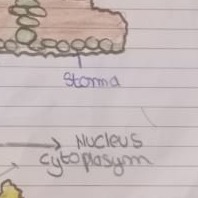 Stoma
Nucleus
Cytoplasym